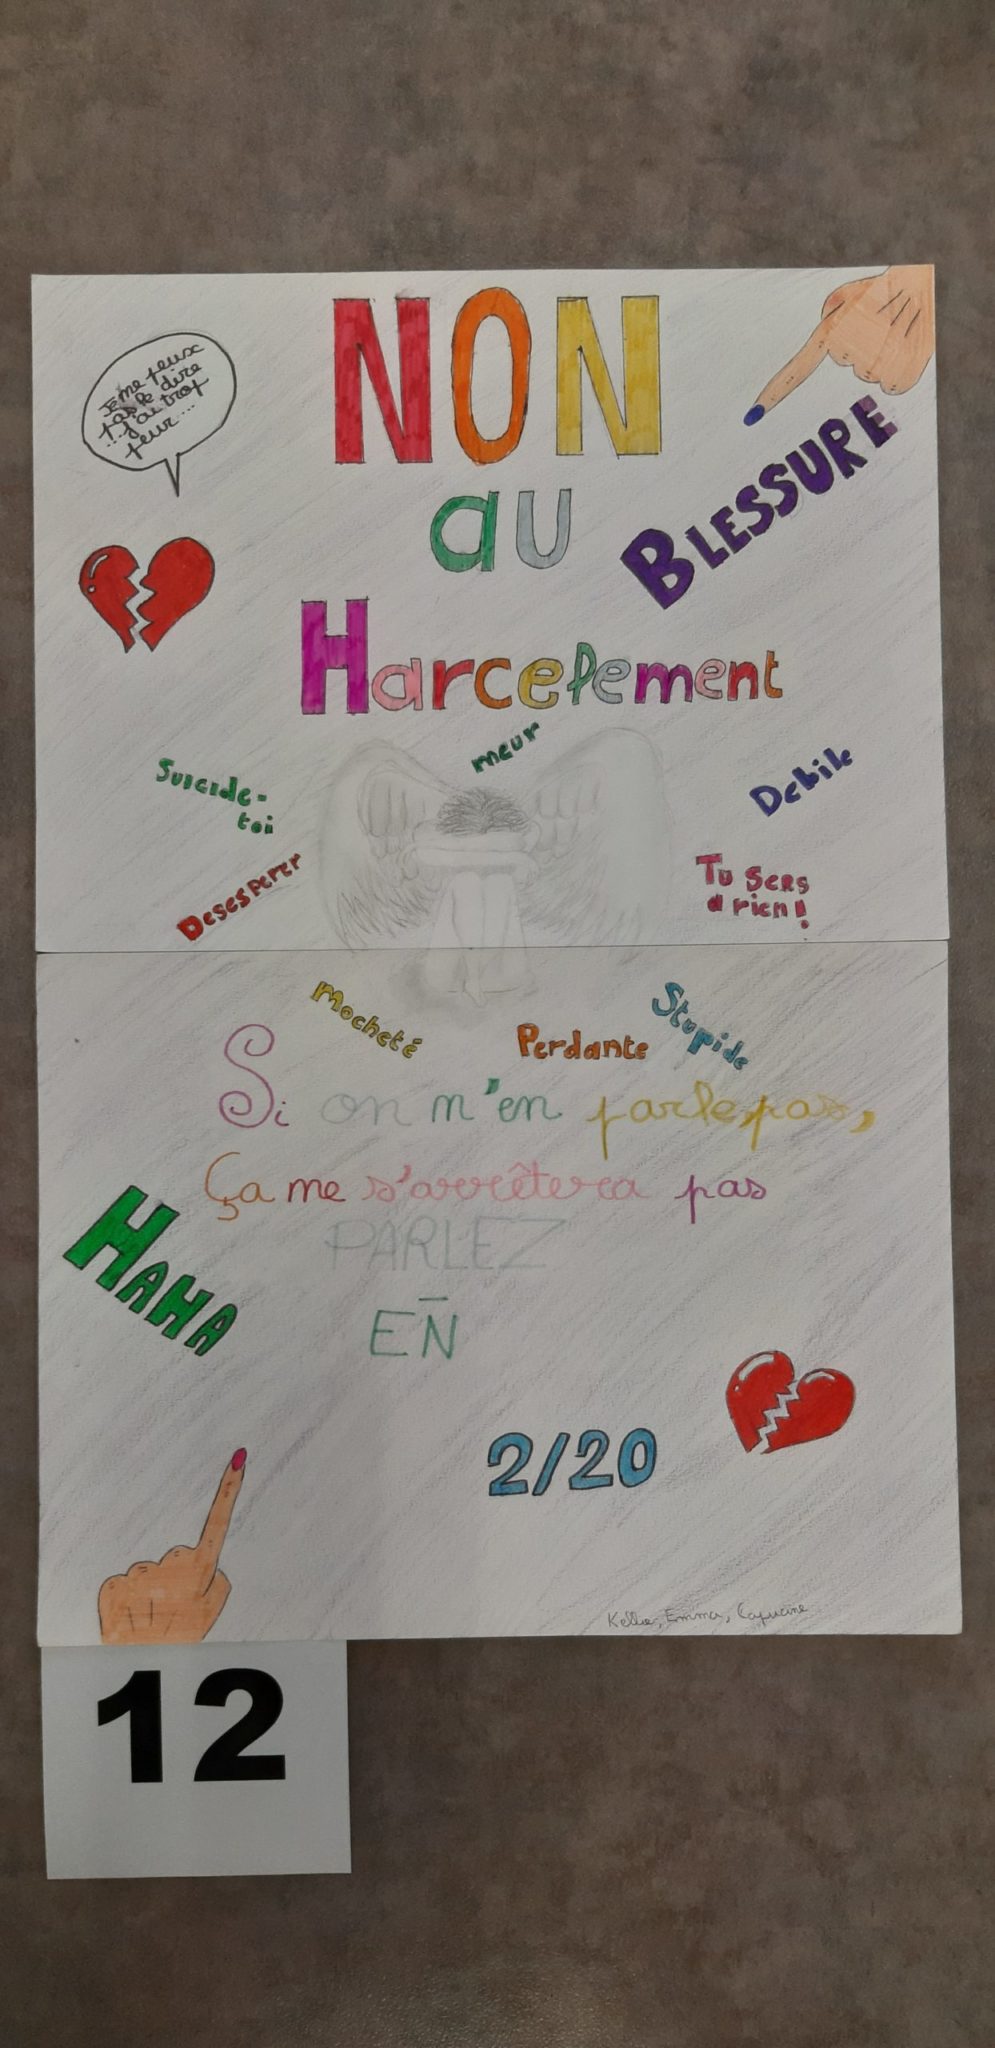 NON
au
Harcelement
Je me peux
pas le dire
...j'ai trop
peur...
BLESSURE
meur
Suicide-
toi
Debile
Desesperer
Tu sers
a rien!
Mocheté
Perdante
Stupide
Si on n'en parle pas,
Ça me s'arrêtera pas
PARLEZ
EN
HAHA
2/20
Kellie, Emma, Capucine
12